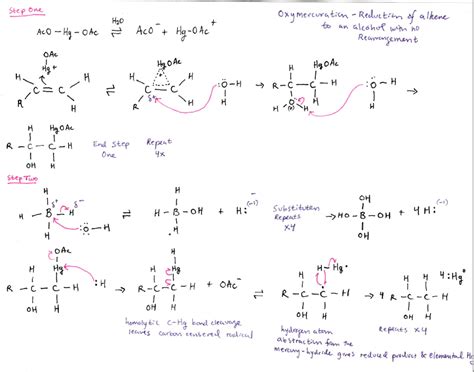 Step One
H₂O
AcO-Hg-OAc ⇌ AcO⁻ + Hg-OAc⁺
Oxymercuration-Reduction of alkene
to an alcohol with no
Rearrangement
OAc
Hg⁺
HgOAc
HgOAc
H H H H H
R C=C H R C=C H O H R-C-C-H O H
HgOAc
R-C-C-H
OH H
End Step
One
Repeat
4x
Step Two
H-B-H O-H ⇌ H-B-OH + H:⁻
Substitution
Repeats
x4
HO-B-OH + 4 H:⁻
OH
OAc
Hg
R-C-C-H :H
OH H
H
Hg
R-C-C-H + OAc⁻
OH H
H-Hg•
R-C-C-H
OH H
4 R-C-C-H
OH H
4:Hg
homolytic C-Hg bond cleavage
leaves carbon centered radical
hydrogen atom
abstraction from the
mercury-hydride gives reduced product & elemental Hg
repeats x4